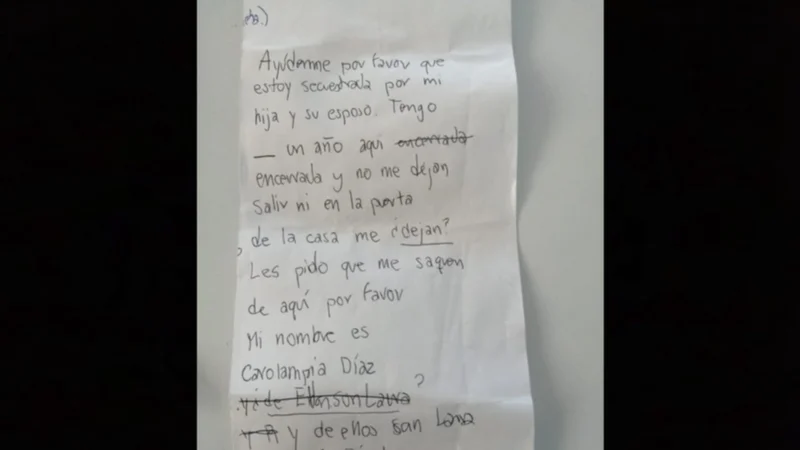 Ayúdenme por favor que
estoy secuestrada por mi
hija y su esposo. Tengo
_ un año aquí encerrada
encerrada y no me dejan
Salir ni en la puerta
de la casa me ¿dejan?
Les pido que me saquen
de aquí por favor
Mi nombre es
Carolampia Díaz
?
y de ellos son